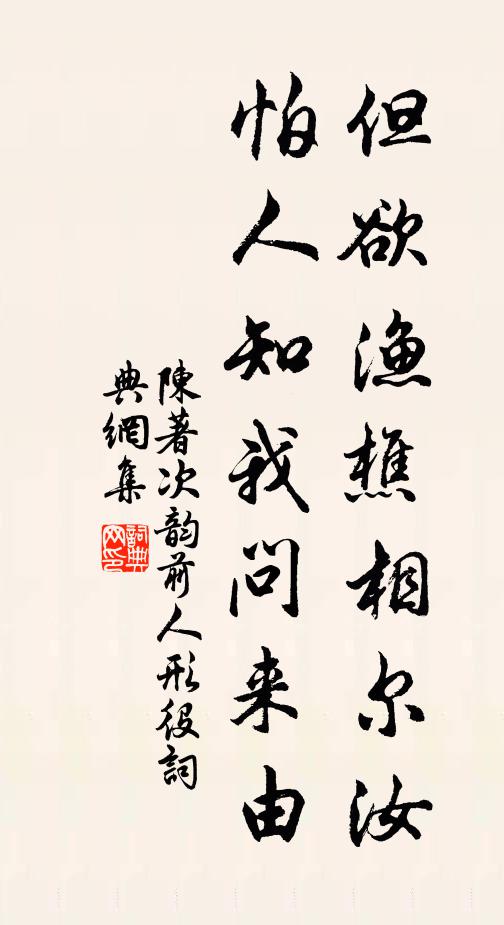 但欲渔樵相尔汝
怕人知我问来由
陳著次韵前人形役詞
典網集
詞典网印